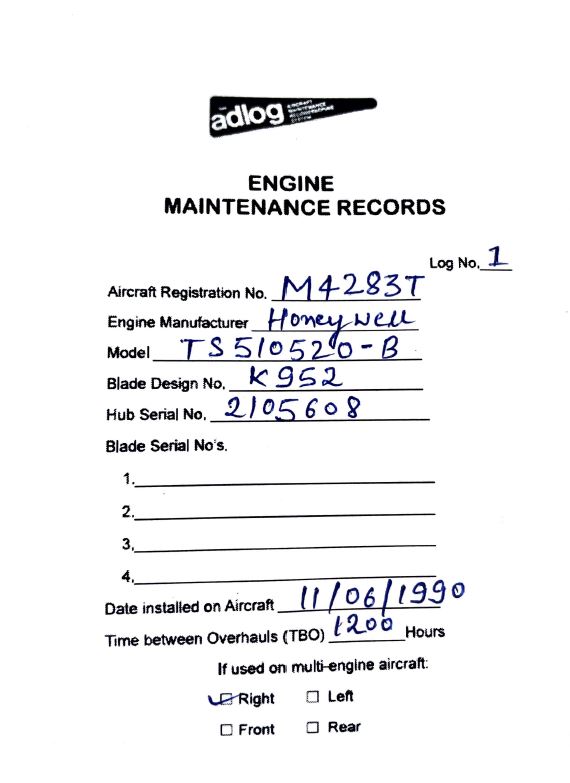 adlog
AIRCRAFT
MAINTENANCE
RECORDKEEPING
SYSTEM
ENGINE
MAINTENANCE RECORDS
Log No. 1
Aircraft Registration No. M4283T
Engine Manufacturer Honeywell
Model TS510520-B
Blade Design No. K952
Hub Serial No. 2105608
Blade Serial No's.
1.
2.
3.
4.
Date installed on Aircraft 11/06/1990
Time between Overhauls (TBO) 1200 Hours
If used on multi-engine aircraft:
Right Left
Front Rear